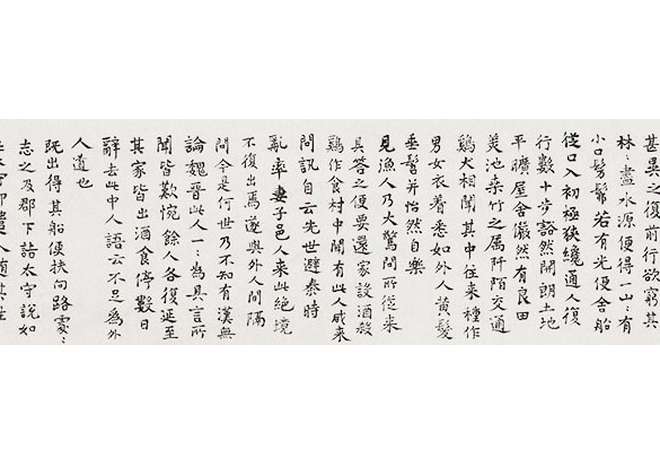 甚異之復前行欲窮其
林〻盡水源便得一山〻有
小口髣髴若有光便舍船
從口入初極狹纔通人復
行數十步豁然開朗土地
平曠屋舍儼然有良田
美池桑竹之属阡陌交通
鷄犬相聞其中往来種作
男女衣着悉如外人黄髮
垂髫并怡然自樂
見漁人乃大驚問所從来
具答之便要還家設酒殺
鷄作食村中聞有此人咸来
問訊自云先世避秦時
亂率妻子邑人来此絶境
不復出焉遂與外人間隔
問今是何世乃不知有漢無
論魏晋此人一〻為具言所
聞皆歎惋餘人各復延至
其家皆出酒食停數日
辭去此中人語云不足為外
人道也
既出得其船便扶向路處〻
志之及郡下詣太守說如